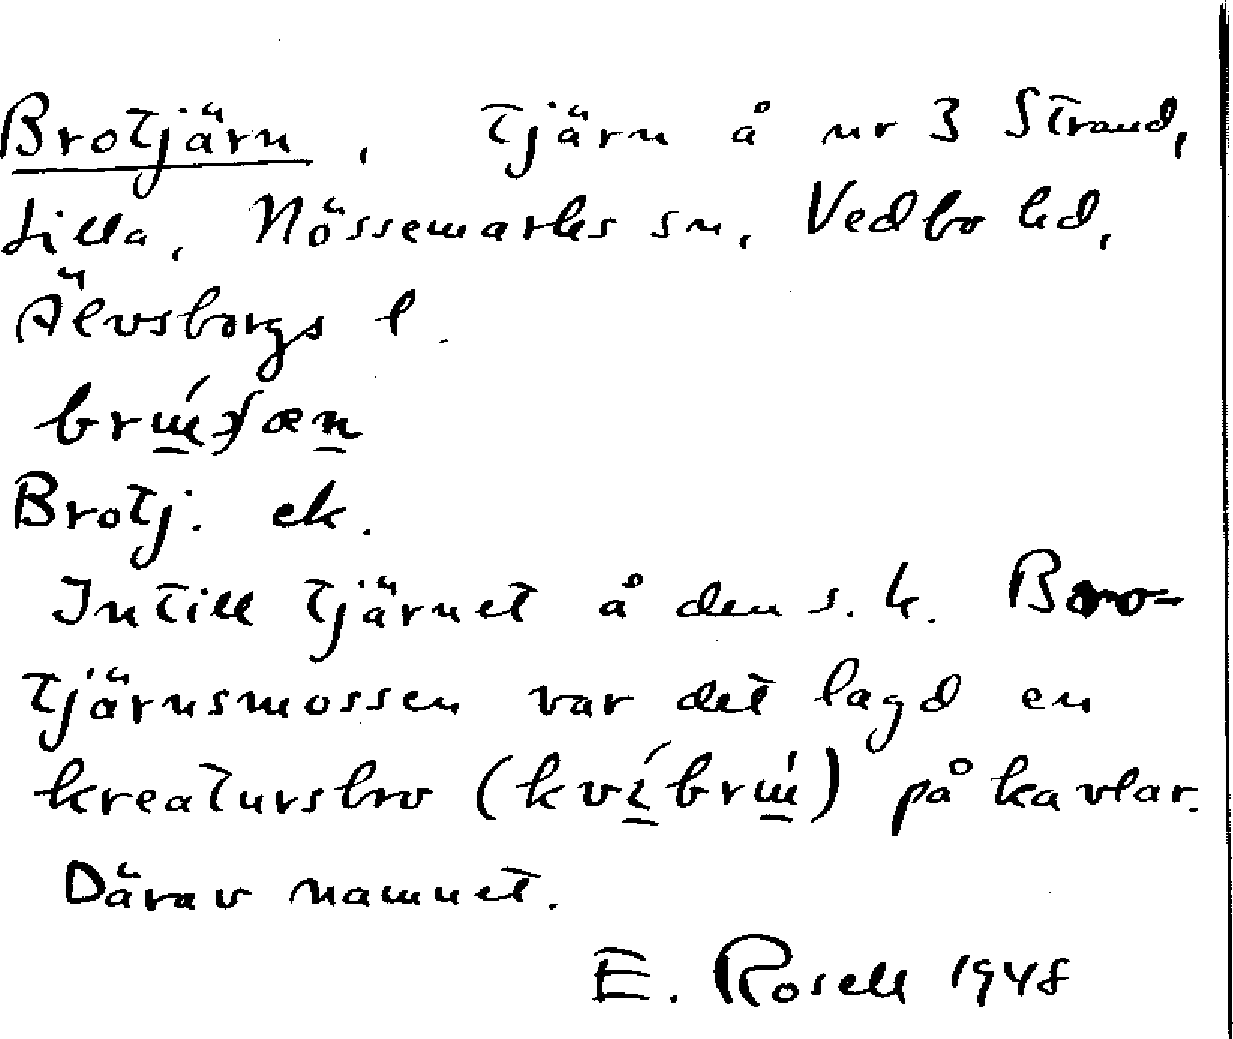 Brotjärn, tjärn å nr 3 Strand,
Lilla, Nössemarks sn, Vedbo hd,
Älvsborgs l.
Brotj. ek.
Intill tjärnet å den s.k. Bro-
tjärnsmossen var det lagd en
kreatursbro (kvíbrɯ́) på kavlar.
Därav namnet.
E. Rosell 1948